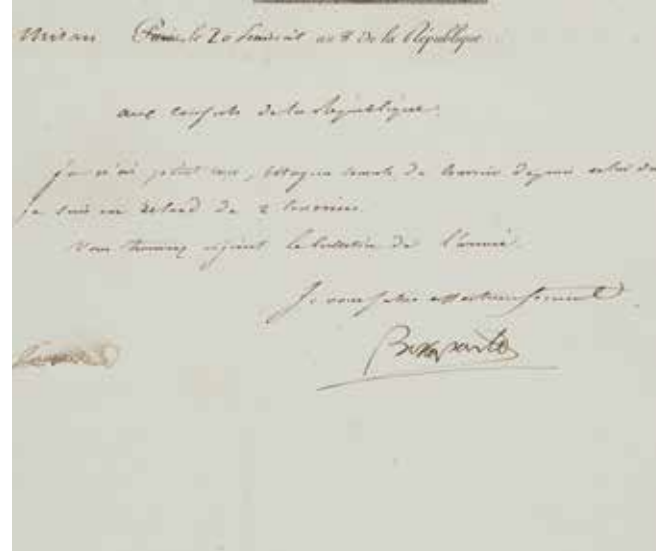 Milan Paris, le 20 Prairial an 8 de la République
aux Consuls de la République.
je n'ai point eu, Citoyens Consuls, de courrier depuis celui du
je suis en retard de 2 courriers.
Vous trouverez ci-joint le bulletin de l'armée.
Je vous salue affectueusement
Bonaparte